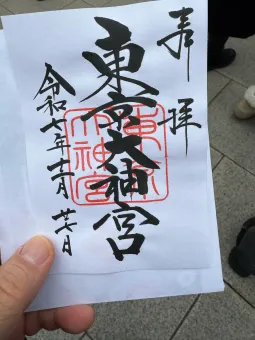 奉拝
東京大神宮
東京大神宮
令和年十二月日